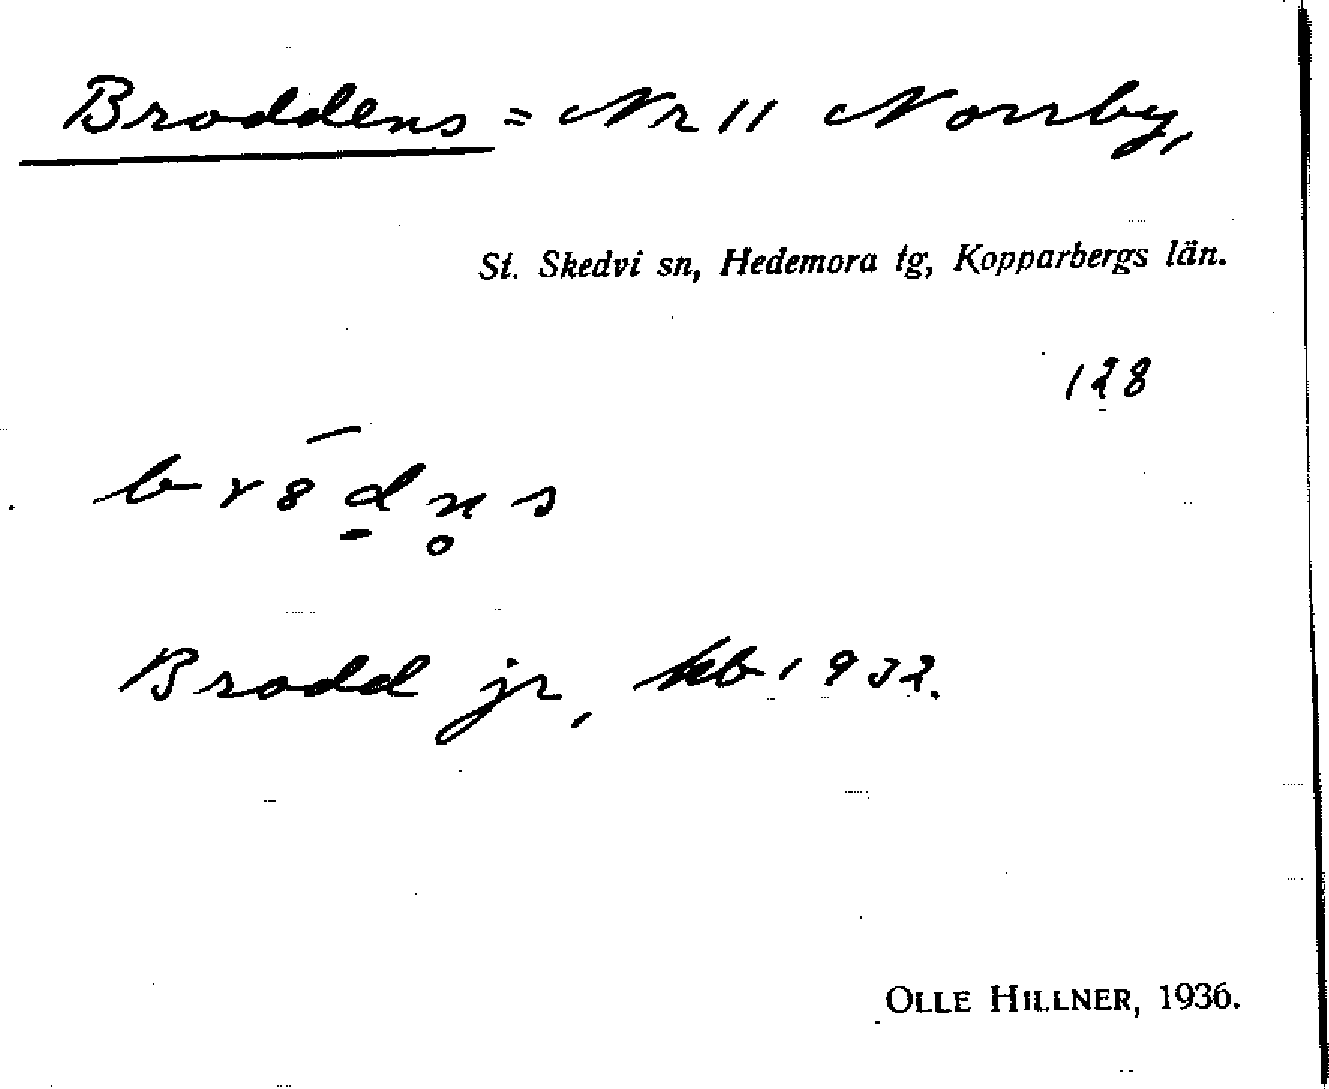 Broddens = Nr 11 Norrby,
St. Skedvi sn, Hedemora tg, Kopparbergs län.
128
br8̄d̠n̥s
Brodd jr, kb. 1932.
OLLE HILLNER, 1936.